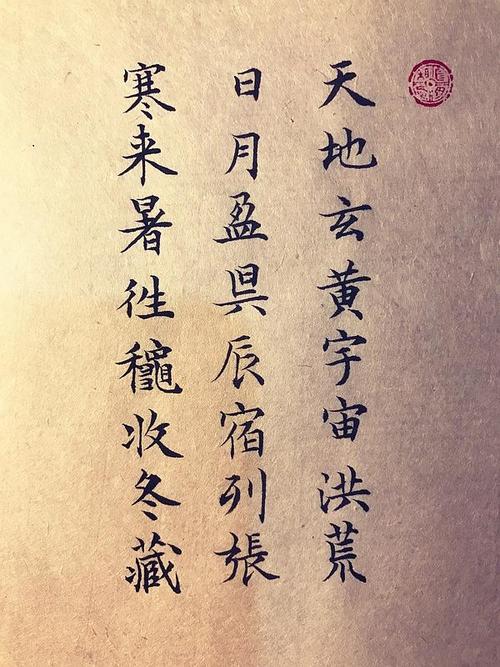 天地玄黄宇宙洪荒
日月盈昃辰宿列張
寒来暑徃穐收冬藏